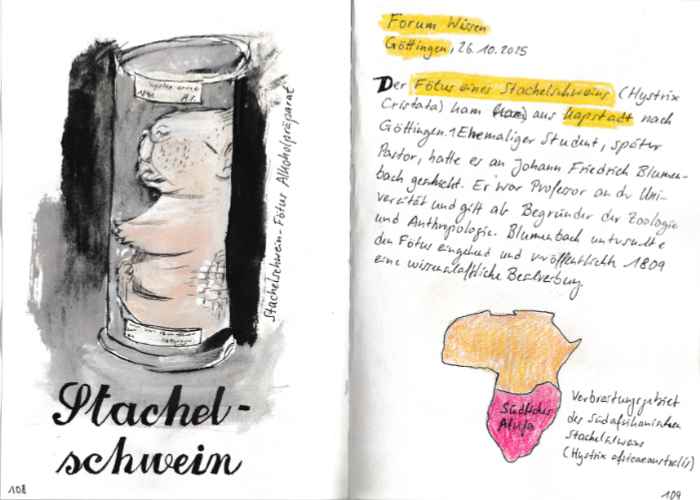 Stachelschwein-Fötus Alkoholpräparat
Stachel-
schwein
108
Forum Wissen
Göttingen, 26.10.2025
Der Fötus eines Stachelschweins (Hystrix
Cristata) kam aus Kapstadt nach
Göttingen. 1 Ehemaliger Student, später
Pastor, hatte es an Johann Friedrich Blumen-
bach geschickt. Er war Professor an der Uni-
versität und gilt als Begründer der Zoologie
und Anthropologie. Blumenbach untersuchte
den Fötus eingehend und veröffentlichte 1809
eine wissenschaftliche Beschreibung
Südliches
Afrika
Verbreitungsgebiet
des Südafrikanischen
Stachelschweins
(Hystrix africaeaustralis)
109